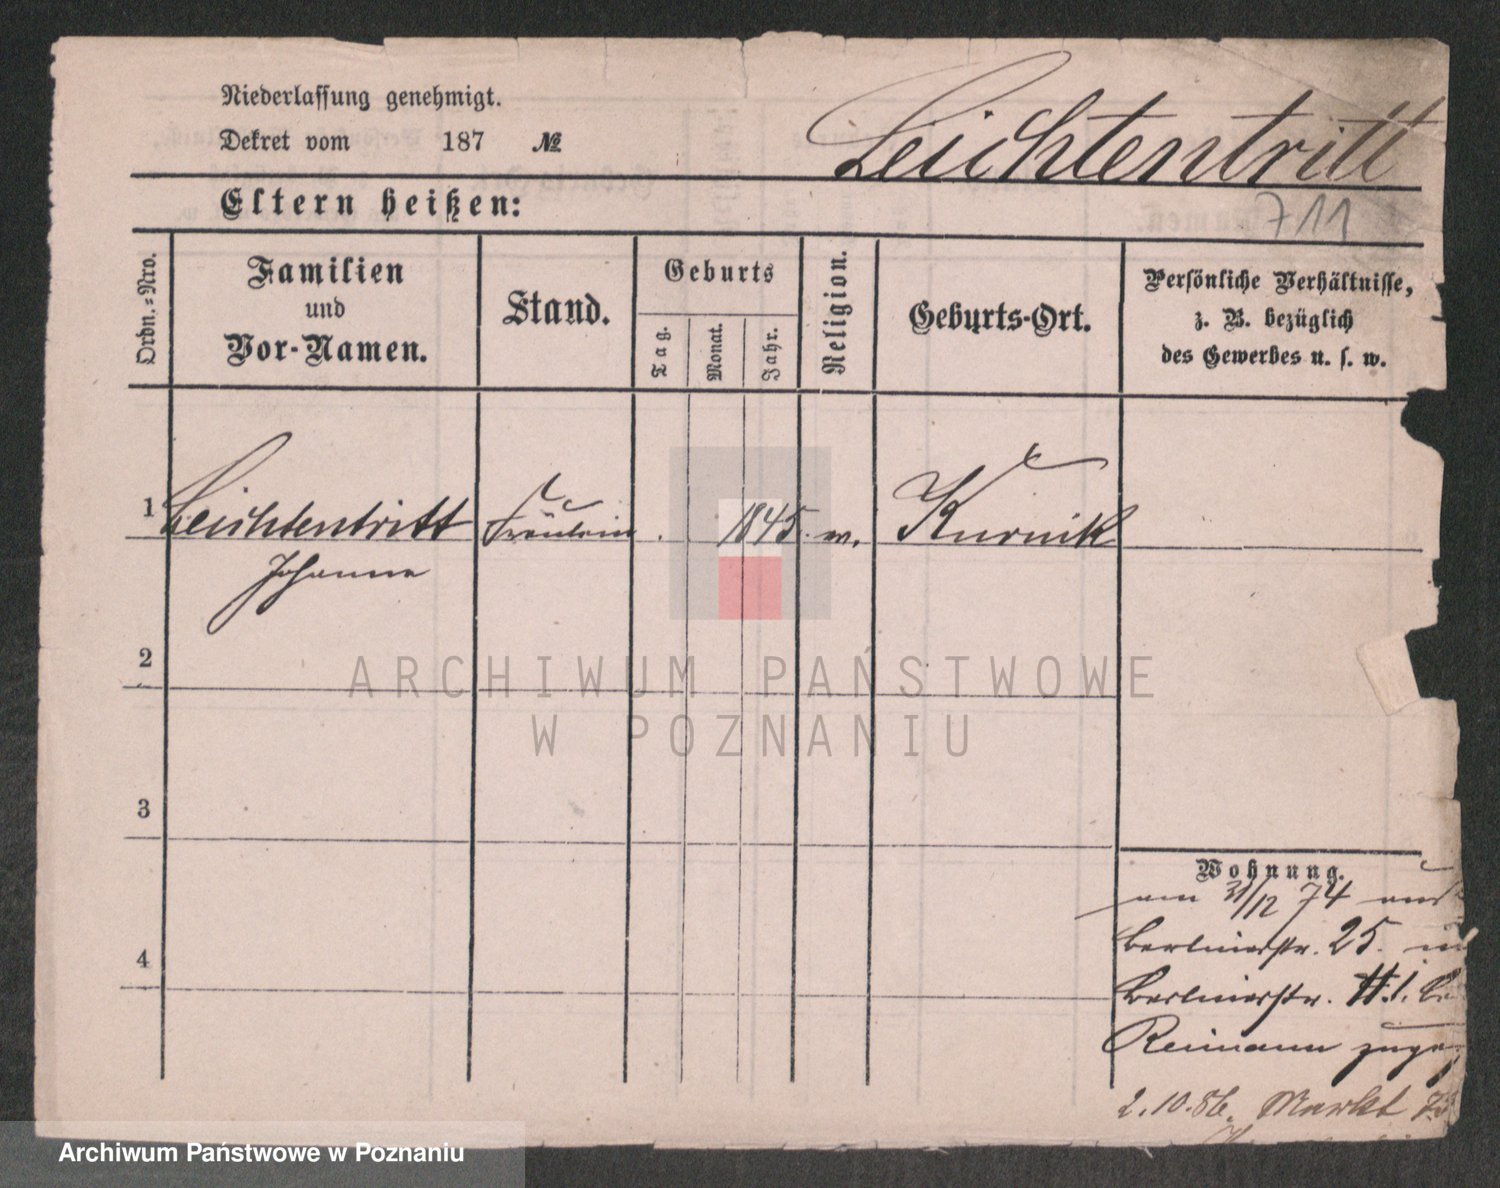 Niederlassung genehmigt.
Leichtentritt
Dekret vom 187 №
Eltern heißen:
711
Ordn.-Nro.
Familien
und
Vor-Namen.
Stand.
Geburts
Tag.
Monat.
Jahr.
Religion.
Geburts-Ort.
Persönliche Verhältnisse,
z. B. bezüglich
des Gewerbes u. s. w.
1 Leichtentritt Fräulein . 1845. m. Kurnik
Johanna
2
3
4
Wohnung.
am 31/12 74 aus
Berlinerstr. 25. in
Berlinerstr.
Reimann
2.10.86. Markt
ARCHIWUM PAŃSTWOWE
W POZNANIU
Archiwum Państwowe w Poznaniu